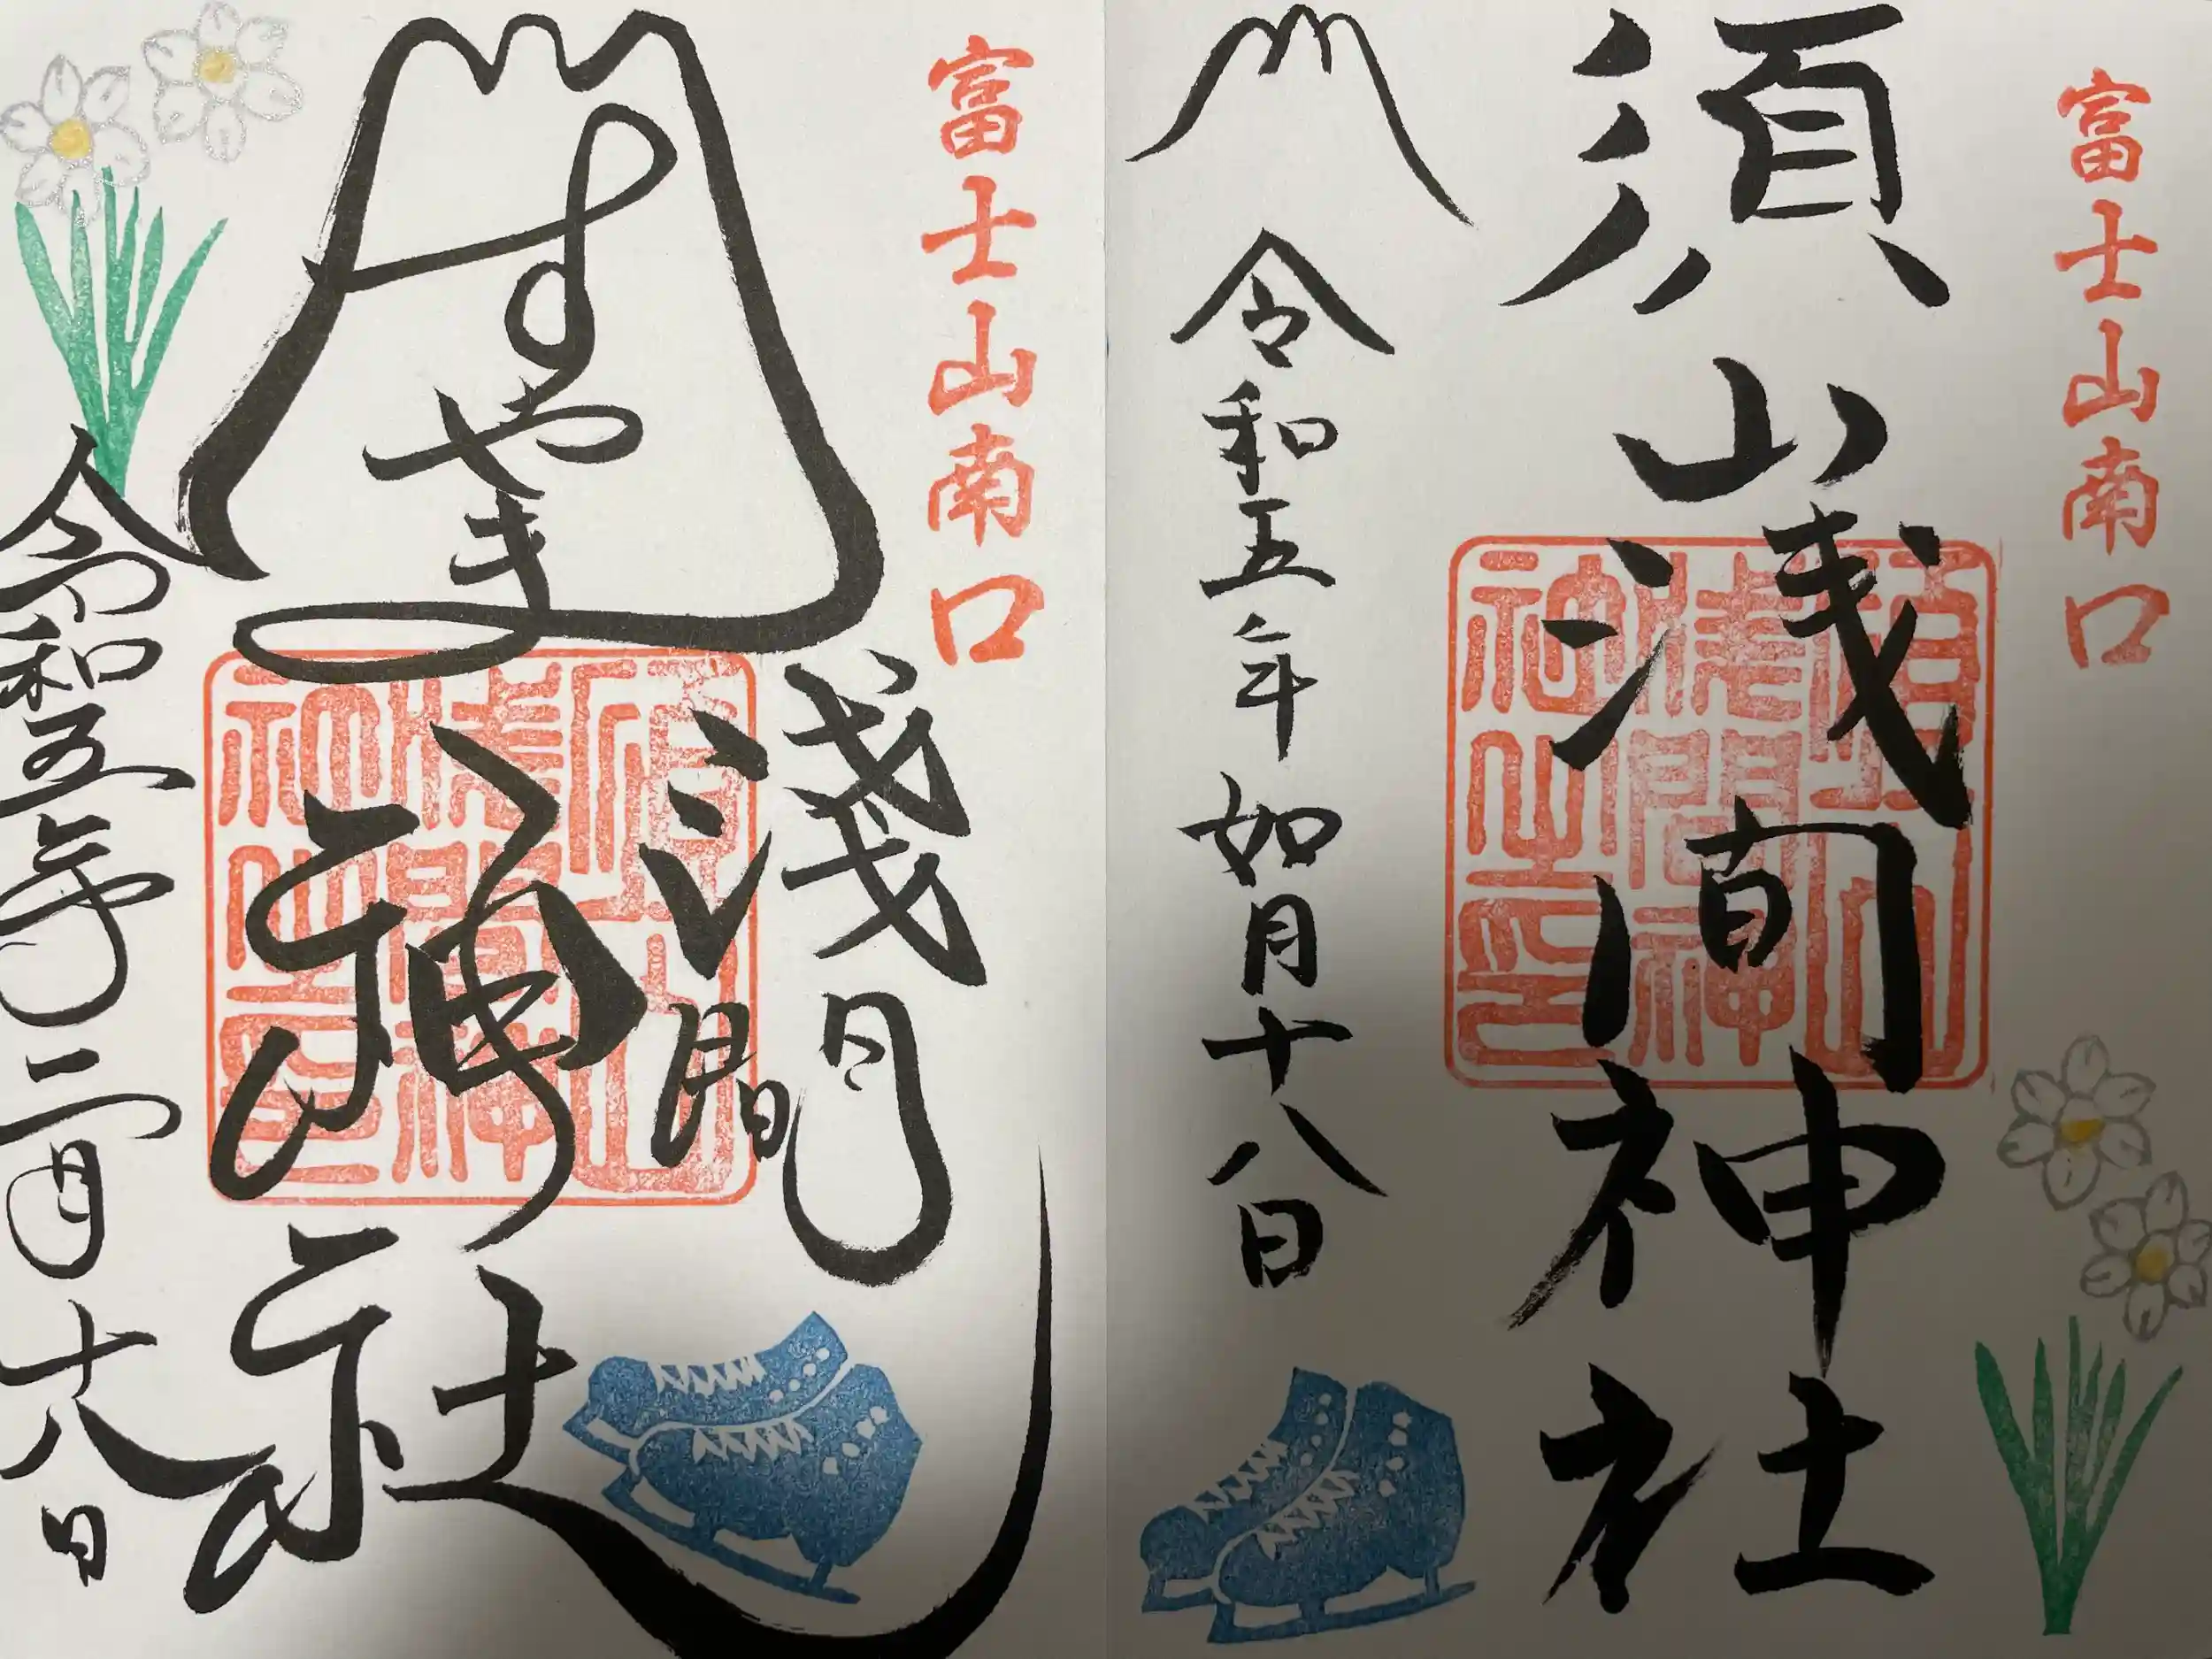 富士山南口
須山浅間神社
令和五年如月十八日
富士山南口
すやま
淺間
神社
令和五年二月十八日